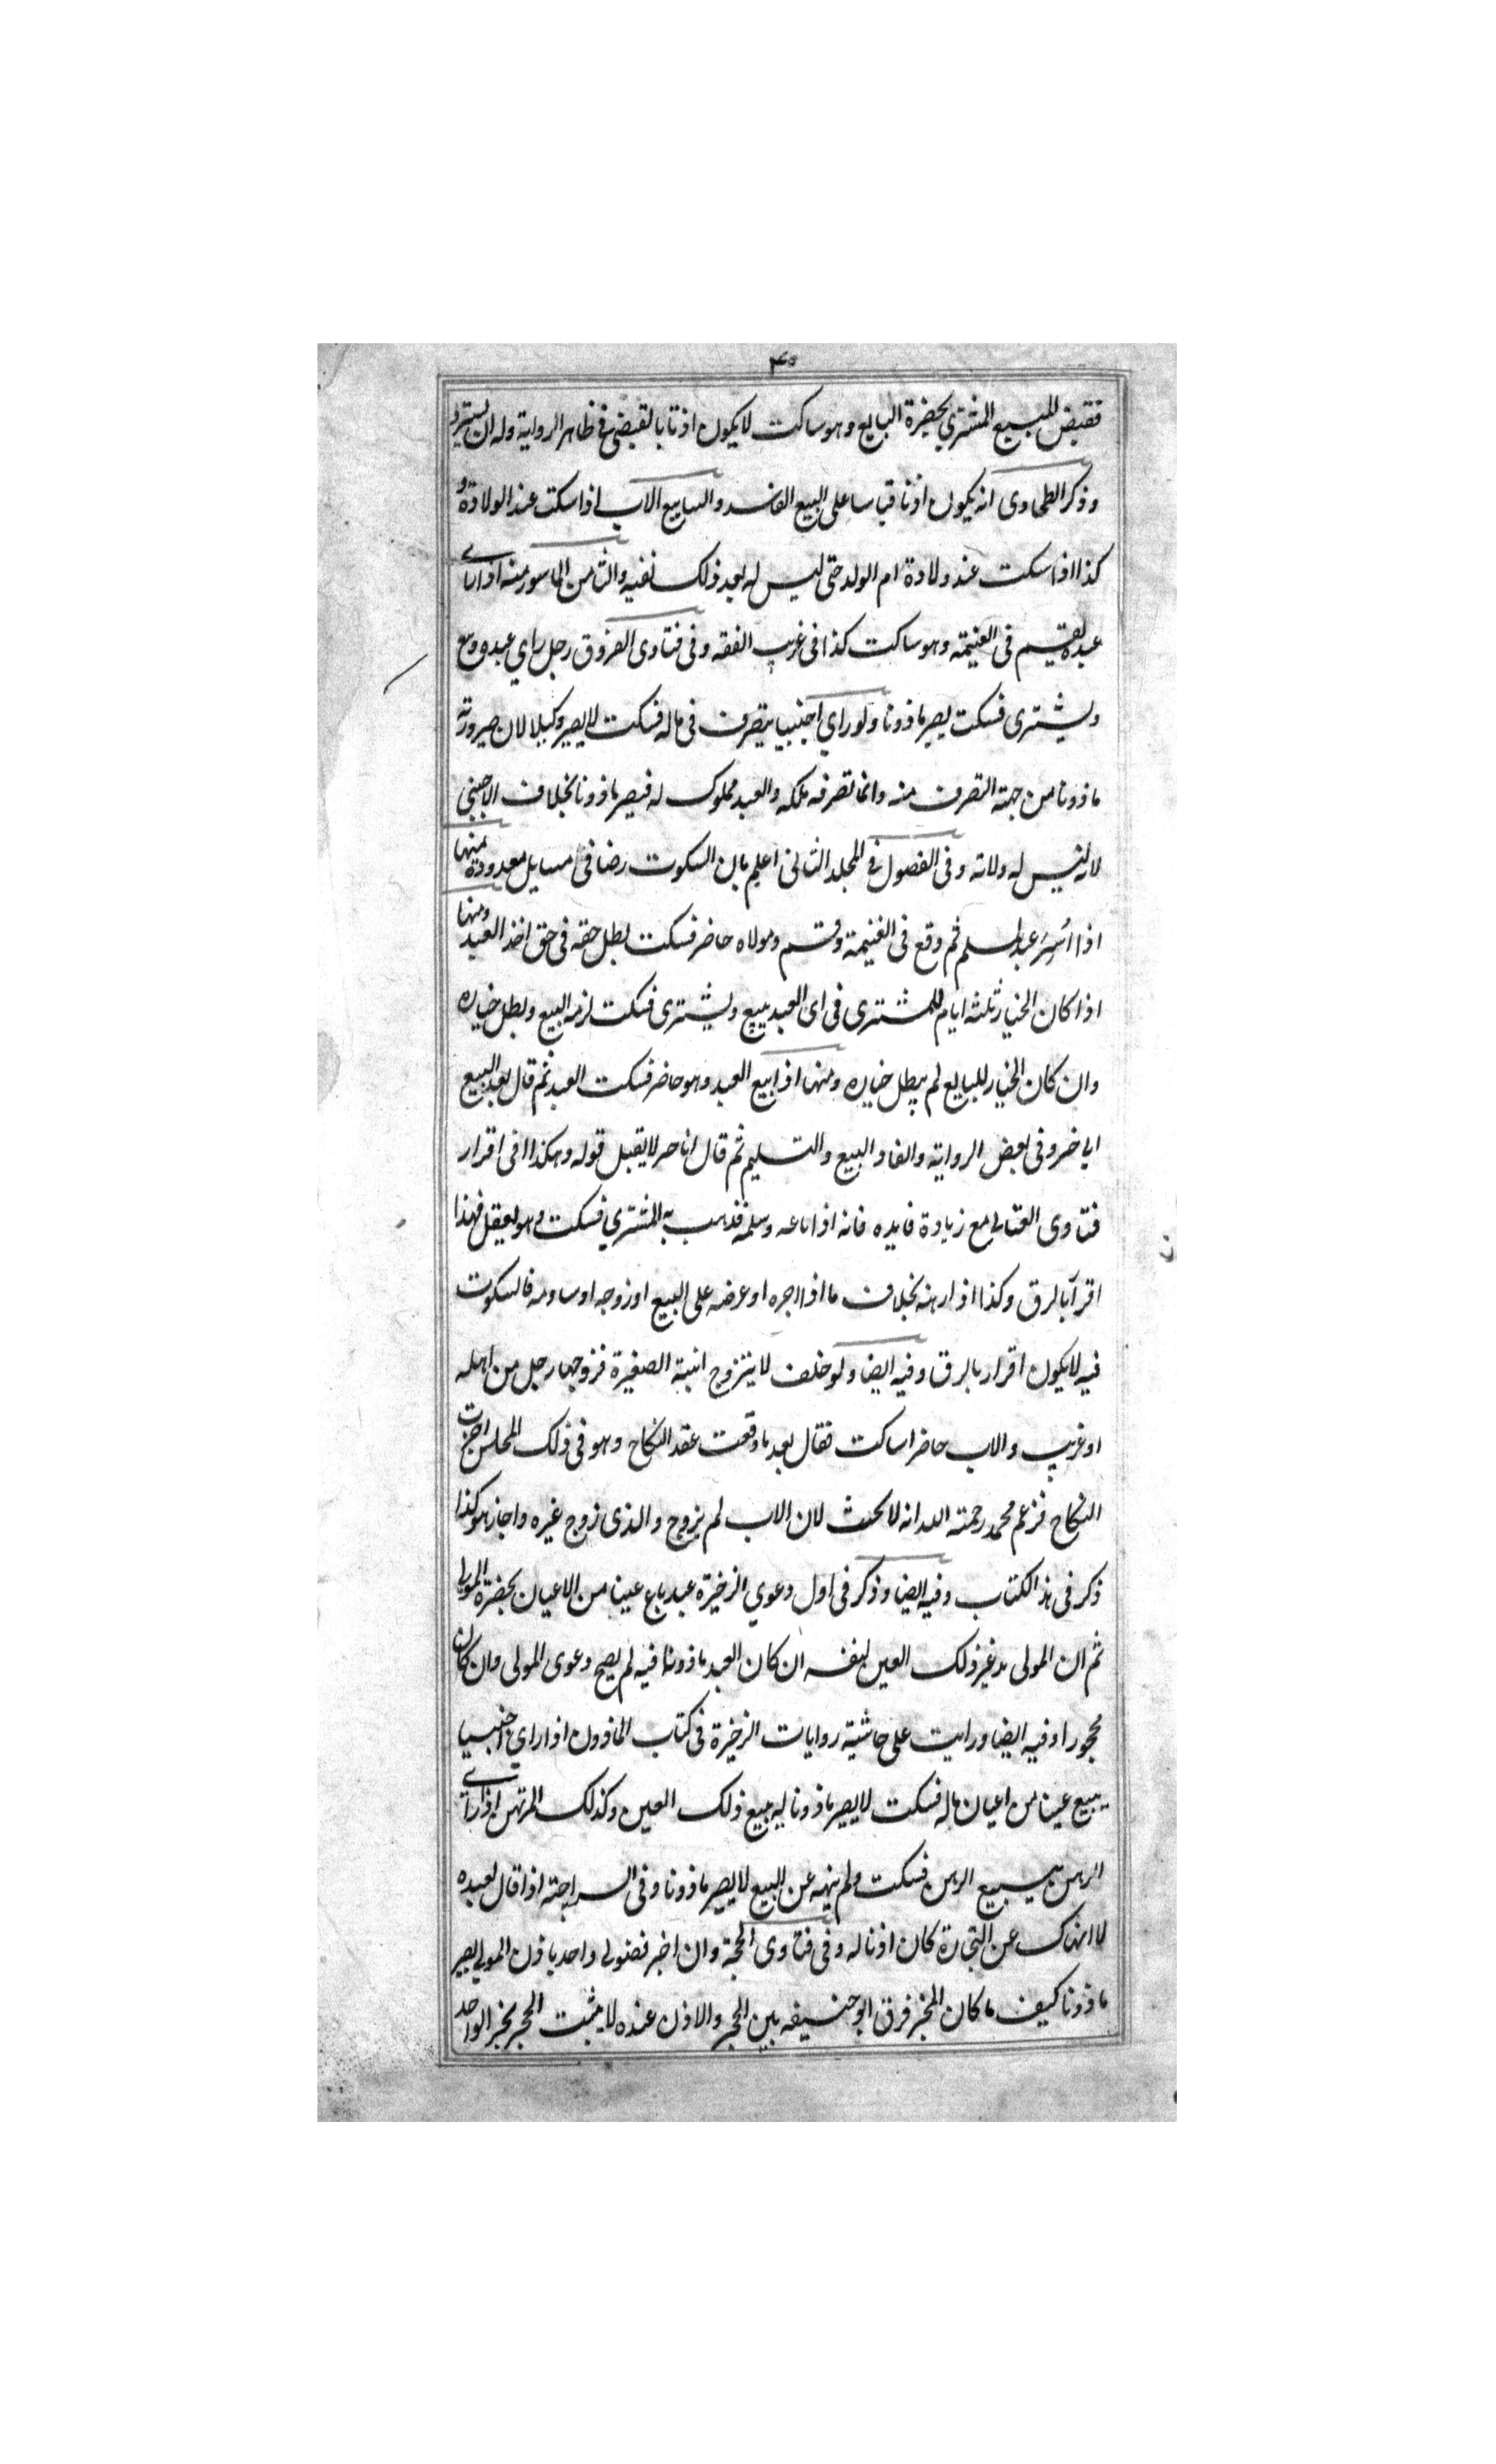 ۴۰
فقبض للبيع المشتري بحضرة البايع وهو ساكت لا يكون اذنا بالقبض في ظاهر الرواية وله ان يسترد
وذكر الطحاوى انه يكون اذنا قياسا على البيع الفاسد والسابع الاب اذا سكت عند الولادة و
كذا اذا سكت عند ولادة ام الولد حتى ليس له بعد ذلك نفيه والثامن الماسور منه اذا راى
عبده يقسم فى الغنيمة وهو ساكت كذا فى غريب الفقه وفى فتاوى الفروق رجل راي عبده يبيع
ويشترى فسكت يصير ماذونا ولو راي اجنبيا يتصرف فى ماله فسكت لا يصير وكيلا لان صيرورته
ماذونا من جهة التصرف منه وانما تصرفه ملكه والعبد مملوك له فيصير ماذونا بخلاف الاجنبي
لانه ليس له ولاته وفى الفصول في المجلد الثانى اعلم بان السكوت رضا فى مسايل معدودة منها
اذا اُسِرَ عبد لمسلم ثم وقع فى الغنيمة وقسم ومولاه حاضر فسكت بطل حقه فى حق اخذ العبد ومنها
اذا كان الخيار ثلثه ايام للمشترى فراى العبد يبيع ويشترى فسكت لزمه البيع وبطل خياره
وان كان الخيار للبايع لم يبطل خياره ومنها اذا بيع العبد وهو حاضر فسكت العبد ثم قال بعد البيع
انا حر وفى بعض الرواية والفاد البيع والتسليم ثم قال انا حر لا يقبل قوله وهكذا فى اقرار
فتاوى العتابي مع زيادة فايده فانه اذا باعه وسلمه فذهب به المشتري فسكت وهو يعقل فهذا
اقرآ بالرق وكذا اذا رهنه بخلاف ما اذا اجره او عرضه على البيع او زوجه او ساومه فالسكوت
فيه لا يكون اقرار بالرق وفيه ايضا ولو حلف لا يتزوج ابنته الصغيرة فزوجها رجل من اهله
او غريب والاب حاضر ساكت فقال بعد ما وقعت عقد النكاح وهو فى ذلك المجلس اجزت
النكاح فزعم محمد رحمته الله انه لا يحنث لان الاب لم يزوج والذى زوج غيره واجاز هو كذا
ذكر فى هذا الكتاب وفيه ايضا وذكر فى اول دعوي الزخيرة عبد باع عينا من الاعيان بحضرة المولى
ثم ان المولى يدعي ذلك العين لنفسه ان كان العبد ماذونا فيه لم يصح دعوى المولى وان كان
محجورا وفيه ايضا ورايت على حاشية روايات الزخيرة فى كتاب الماذون اذا راي اجنبيا
يبيع عينا من اعيان ماله فسكت لا يصير ماذونا له ببيع ذلك العين وكذلك المرتهن اذا راى
الرهن يبيع الرهن فسكت ولم ينهه عن البيع لا يصير ماذونا وفى السراجية اذا قال لعبده
لا انهاك عن التجارة كان اذنا له وفى فتاوى الحجة وان اخبر فضولى واحد باذن المولى يصير
ماذونا كيف ما كان المخبر فرق ابو حنيفه بين الحجر والاذن عنده لا يثبت الحجر بخبر الواحد